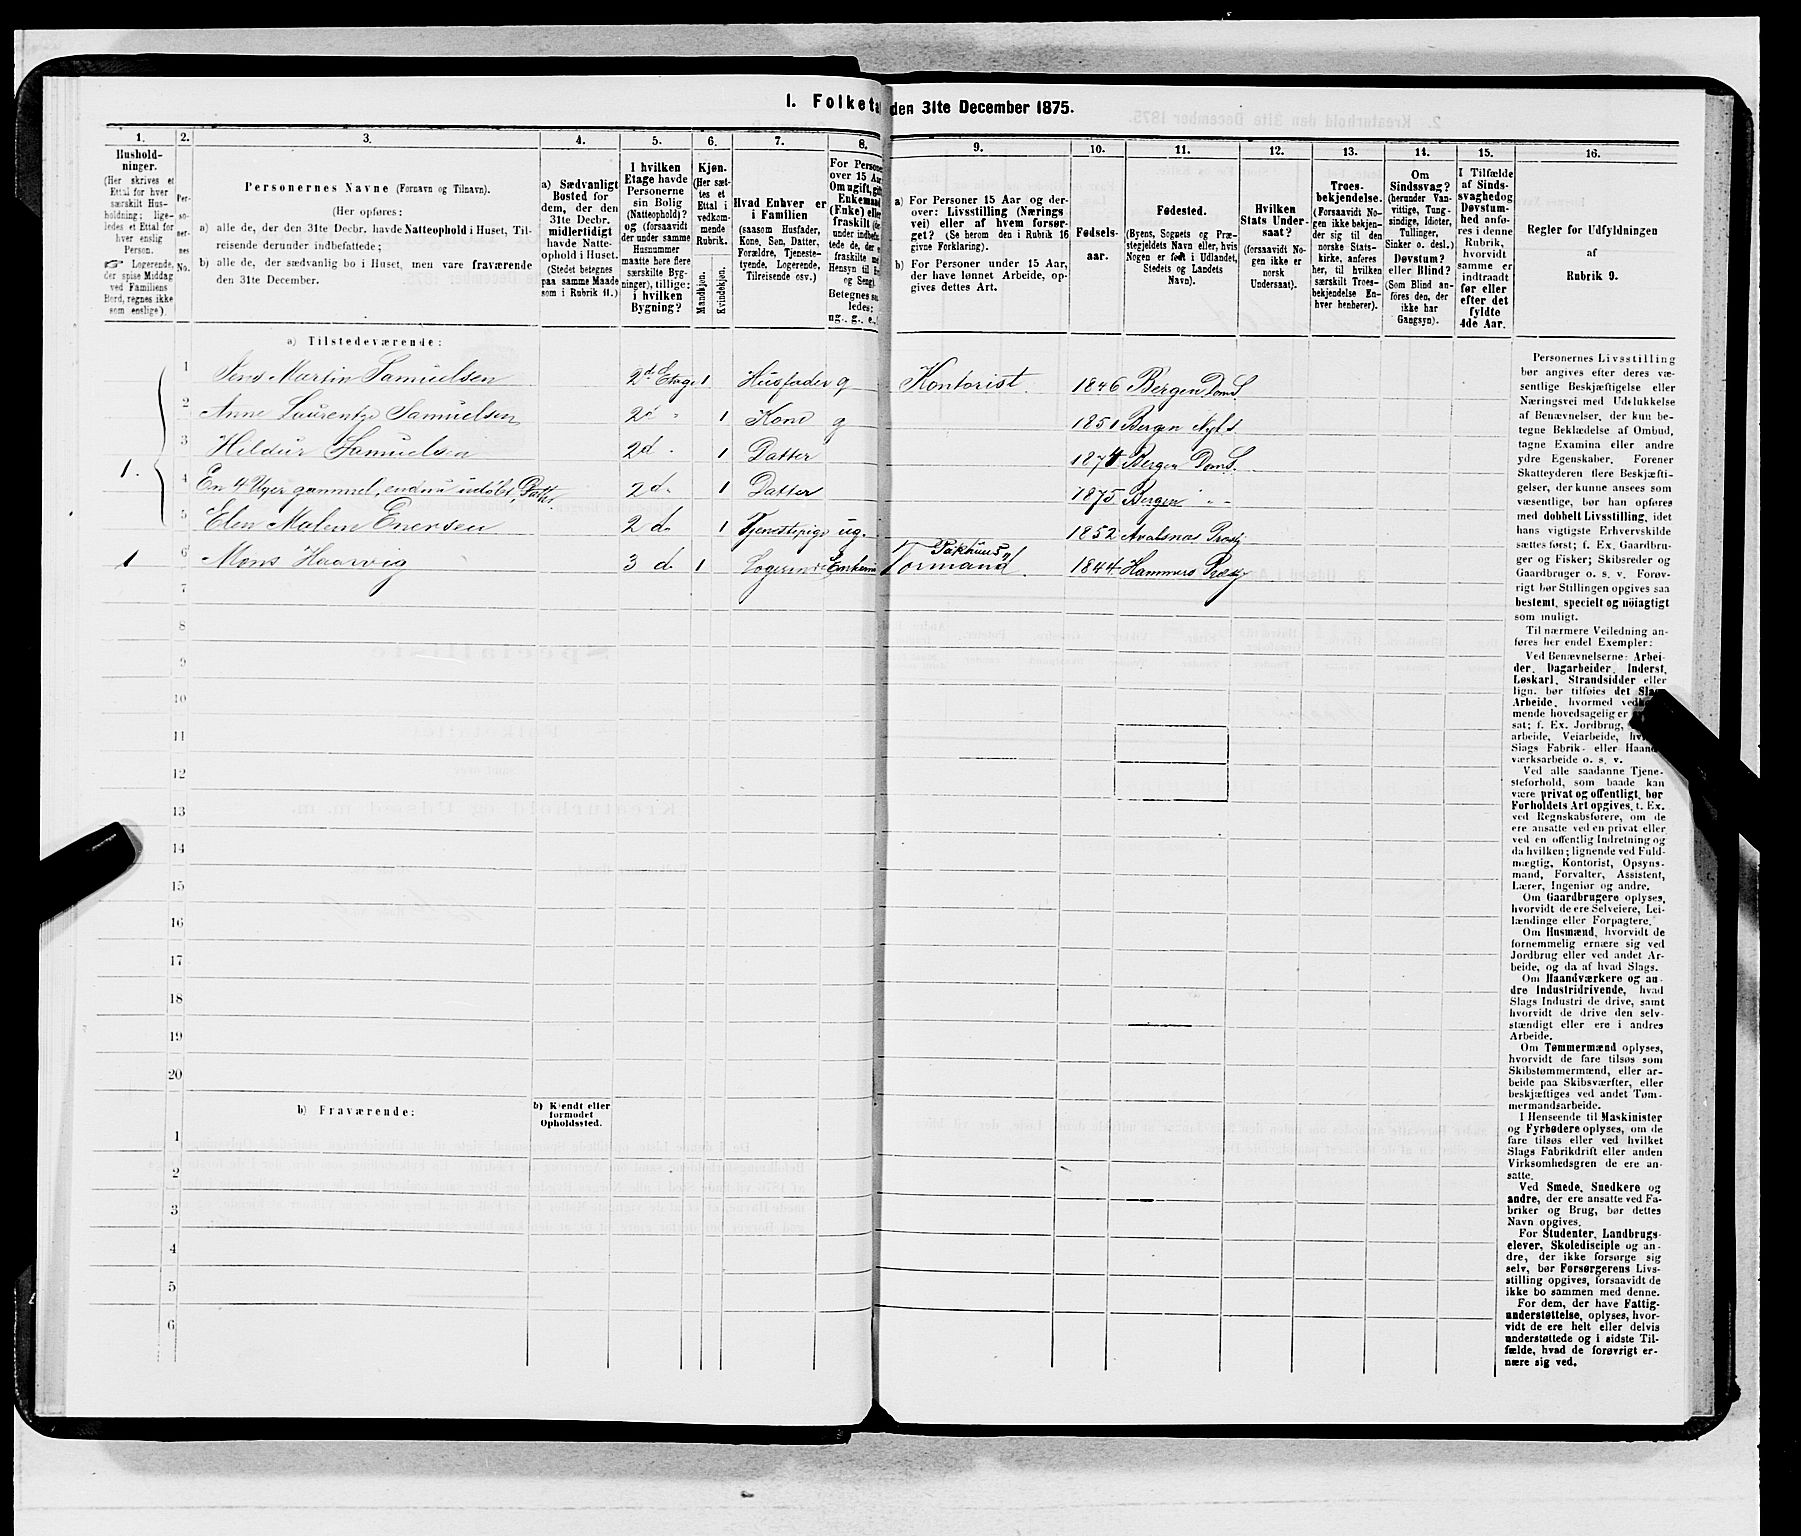 I. Folketal den 31te December 1875.
1. 2. 3. 4. 5. 6. 7. 8. 9. 10. 11. 12. 13. 14. 15. 16.
Husholdninger.
(Her skrives et
Ettal for hver
særskilt Husholdning; ligeledes
et Ettal for
hver enslig
Person.
☞ Logerende,
der spise Middag
ved Familiens
Bord, regnes ikke
som enslige).
Personernes
No.
Personernes Navne (Fornavn og Tilnavn).
(Her opføres:
a) alle de, der den 31te Decbr. havde Natteophold i Huset, Tilreisende
derunder indbefattede;
b) alle de, der sædvanlig bo i Huset, men vare fraværende
den 31te December.
a) Sædvanligt
Bosted for
dem, der den
31te Decbr.
midlertidigt
havde Natteophold
i Huset.
(Stedet betegnes
paa samme Maade
som i Rubrik 11.)
I hvilken
Etage havde
Personerne
sin Bolig
(Natteophold)?
og (forsaavidt
der under samme
Husnummer
maatte høre flere
særskilte Bygninger),
tillige:
i hvilken
Bygning?
Kjøn.
(Her sættes
et
Ettal i
vedkommende
Rubrik.
Mandkjøn.
Kvindekjøn.
Hvad Enhver er
i Familien
(saasom Husfader,
Kone, Søn, Datter,
Forældre, Tjenestetyende,
Logerende,
Tilreisende osv.)
For Personer
over 15 Aar
Om ugift, gift,
Enkemand
(Enke) eller
fraskilt
Betegnes saaledes:
ug., g., e.,
a) For Personer 15 Aar og derover:
Livsstilling (Næringsvei)
eller af hvem forsørget?
(Se herom den i Rubrik 16
givne Forklaring).
b) For Personer under 15 Aar,
der have lønnet Arbeide, opgives
dettes Art.
Fødselsaar.
Fødested.
(Byens, Sognets og Præstegjeldets
Navn eller, hvis
Nogen er født i Udlandet,
Stedets og Landets
Navn).
Hvilken
Stats Undersaat?
(forsaavidt Nogen
ikke er
norsk
Undersaat).
Troesbekjendelse.
(Forsaavidt Nogen
ikke bekjender
sig til den
norske Statskirke,
anføres
her, til hvilken
særskilt Troesbekjendelse
Enhver
henhører).
Om
Sindssvag?
(herunder Vanvittige,
Tungsindige,
Idioter,
Tullinger,
Sinker o. desl.)
Døvstum?
eller Blind?
(Som Blind anføres
den, der
ikke har
Gangsyn).
I Tilfælde
af Sindssvaghed
og
Døvstumhed
anføres
i denne
Rubrik,
hvorvidt
samme er
indtraadt
før eller
efter det
fyldte
4de Aar.
Regler for Udfyldningen
af
Rubrik 9.
a) Tilstedeværende:
1 Jens Martin Samuelsen 2d Etage 1 Husfader g Kontorist 1846 Bergen DomS.
2 Anne Laurentze Samuelsen 2d " 1 Kone g 1851 Bergen
3 Hildur Samuelsen 2d " 1 Datter 1874 Bergen DomS.
1. 4 En 4 Uger gammel, endnu udøbt Datter 2d 1 Datter 1875 Bergen " "
5 Elen Malene Enersen 2 d 1 Tjenestepige ug. 1852 Avalsnæs Præstg
1 6 Mons Haarvig 3 d 1 Logerende Enkemand Pakhuus Formand 1844 Hammers Præstg
7
8
9
10
11
12
13
14
15
16
17
18
19
20
b) Fraværende:
b) Kjendt eller
formodet
Opholdssted.
1
2
3
4
5
6
Personernes Livsstilling
bør angives efter deres væsentlige
Beskjæftigelse eller
Næringsvei med Udelukkelse
af Benævnelser, der kun betegne
Beklædelse af Ombud,
tagne Examina eller andre
ydre Egenskaber. Forener
Skatteyderen flere Beskjæftigelser,
der kunne ansees som
væsentlige, bør han opføres
med dobbelt Livsstilling, idet
hans vigtigste Erhvervskilde
sættes først; f. Ex. Gaardbruger
og Fisker; Skibsreder og
Gaardbruger o. s. v. Forøvrigt
bør Stillingen opgives saa
bestemt, specielt og nöiagtigt
som muligt.
Til nærmere Veiledning anføres
her endel Exempler:
Ved Benævnelserne: Arbeider,
Dagarbeider, Inderst,
Løskarl, Strandsidder eller
lign. bør tilføies det Slags
Arbeide, hvormed vedkommende
hovedsagelig er
sat; f. Ex. Jordbrug,
arbeide, Veiarbeide,
Slags Fabrik- eller Haandværksarbeide
o. s. v.
Ved alle saadanne Tjenesteforhold,
som baade kan
være privat og offentligt, bør
Forholdets Art opgives, t. Ex.
ved Regnskabsførere, om de
ere ansatte ved en privat eller
ved en offentlig Indretning og
da hvilken; lignende ved Fuldmægtig,
Kontorist, Opsynsmand,
Forvalter, Assistent,
Lærer, Ingeniør og andre.
Om Gaardbrugere oplyses,
hvorvidt de ere Selveiere, Leilændinge
eller Forpagtere.
Om Husmænd, hvorvidt de
fornemmelig ernære sig ved
Jordbrug eller ved andet Arbeide,
og da af hvad Slags.
Om Haandværkere og andre
Industridrivende, hvad
Slags Industri de drive, samt
hvorvidt de drive den selvstændigt
eller ere i andres
Arbeide.
Om Tømmermænd oplyses,
hvorvidt de fare tilsøs som
Skibstømmermænd, eller arbeide
paa Skibsværfter, eller
beskjæftiges ved andet Tømmermandsarbeide.
I Henseende til Maskinister
og Fyrbødere oplyses, om de
fare tilsøs eller ved hvilket
Slags Fabrikdrift eller anden
Virksomhedsgren de ere ansatte.
Ved Smede, Snedkere og
andre, der ere ansatte ved Fabriker
og Brug, bør dettes
Navn opgives.
For Studenter, Landbrugselever,
Skoledisciple og andre,
der ikke forsørge sig
selv, bør Forsørgerens Livsstilling
opgives, forsaavidt de
ikke bo sammen med denne.
For dem, der have Fattigunderstøttelse,
oplyses, hvorvidt
de ere helt eller delvis
understøttede og i sidste Tilfælde,
hvad de forøvrigt ernære
sig ved.